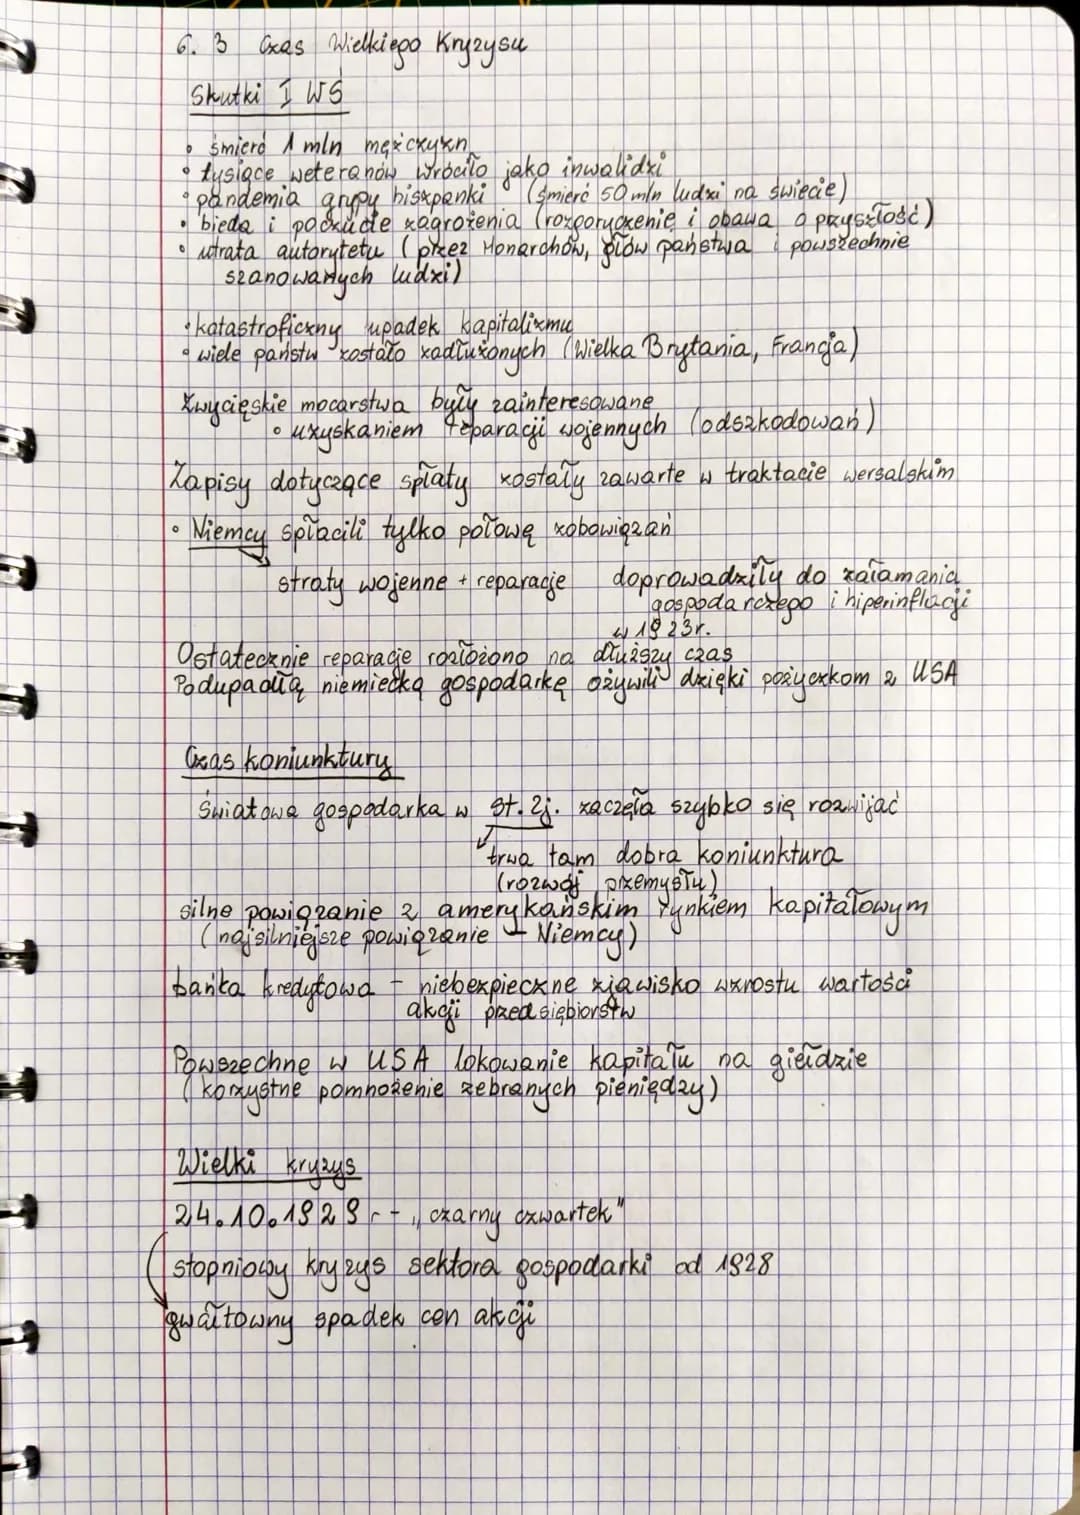 6. 3 Czas Wielkiego Kryzysu
Skutki I WŚ
• śmierć 1 mln mężczyzn
• tysiące weteranów wróciło jako inwalidzi
• pandemia grypy hiszpanki (śmierć 50 mln ludzi na świecie)
• bieda i poczucie zagrożenia (rozgoryczenie i obawa o przyszłość)
• utrata autorytetu (przez Monarchów, głów państwa i powszechnie
szanowanych ludzi)
• katastroficzny upadek kapitalizmu
• wiele państw zostało zadłużonych (Wielka Brytania, Francja)
Zwycięskie mocarstwa były zainteresowane
• uzyskaniem reparacji wojennych (odszkodowań)
Zapisy dotyczące spłaty zostały zawarte w traktacie wersalskim
• Niemcy spłacili tylko połowę zobowiązań
straty wojenne + reparacje doprowadziły do załamania
gospodarczego i hiperinflacji
w 1923r.
Ostatecznie reparacje rozłożono na dłuższy czas
Podupadłą niemiecką gospodarkę ożywili dzięki pożyczkom z USA
Czas koniunktury
Światowa gospodarka w St. Zj. zaczęła szybko się rozwijać
trwa tam dobra koniunktura
(rozwój przemysłu)
silne powiązanie z amerykańskim rynkiem kapitałowym
(najsilniejsze powiązanie – Niemcy)
bańka kredytowa – niebezpieczne zjawisko wzrostu wartości
akcji przedsiębiorstw
Powszechne w USA lokowanie kapitału na giełdzie
(korzystne pomnożenie zebranych pieniędzy)
Wielki kryzys
24.10.1929 r – „czarny czwartek"
stopniowy kryzys sektora gospodarki od 1928
gwałtowny spadek cen akcji